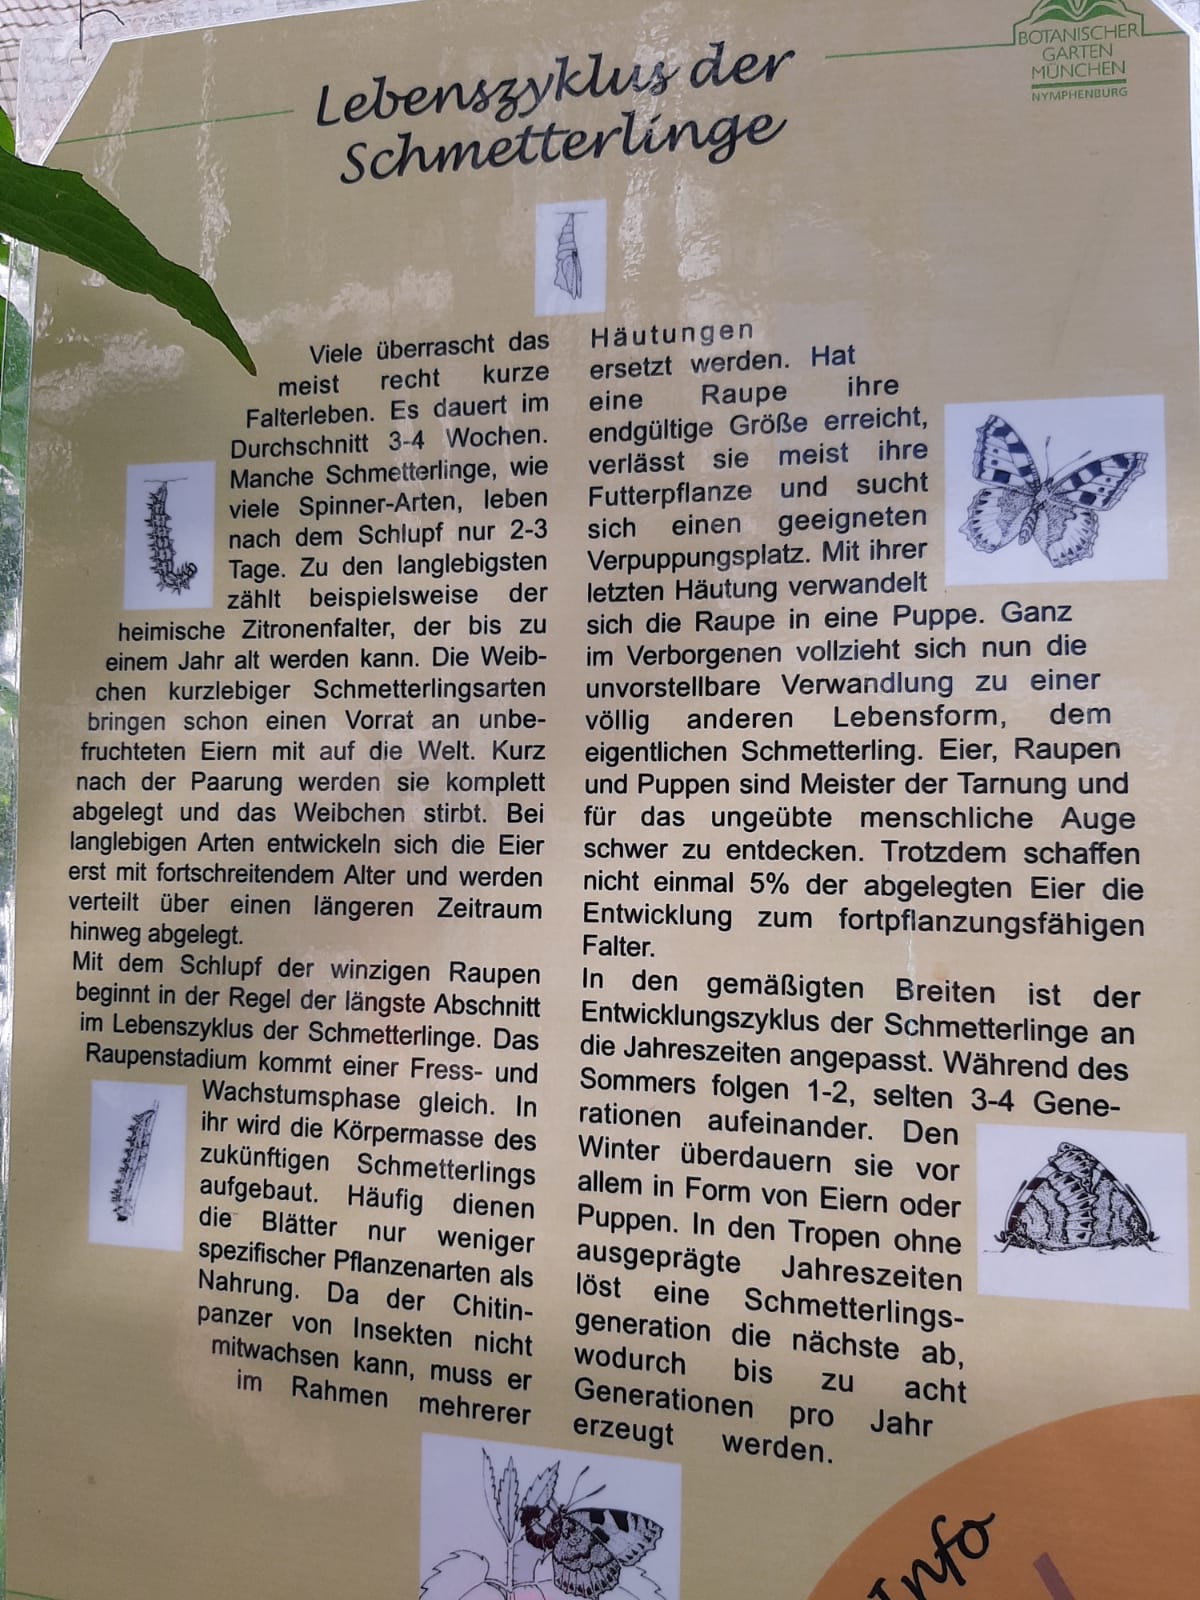 BOTANISCHER
GARTEN
MÜNCHEN
NYMPHENBURG
Lebenszyklus der
Schmetterlinge
Viele überrascht das
meist recht kurze
Falterleben. Es dauert im
Durchschnitt 3-4 Wochen.
Manche Schmetterlinge, wie
viele Spinner-Arten, leben
nach dem Schlupf nur 2-3
Tage. Zu den langlebigsten
zählt beispielsweise der
heimische Zitronenfalter, der bis zu
einem Jahr alt werden kann. Die Weib-
chen kurzlebiger Schmetterlingsarten
bringen schon einen Vorrat an unbe-
fruchteten Eiern mit auf die Welt. Kurz
nach der Paarung werden sie komplett
abgelegt und das Weibchen stirbt. Bei
langlebigen Arten entwickeln sich die Eier
erst mit fortschreitendem Alter und werden
verteilt über einen längeren Zeitraum
hinweg abgelegt.
Mit dem Schlupf der winzigen Raupen
beginnt in der Regel der längste Abschnitt
im Lebenszyklus der Schmetterlinge. Das
Raupenstadium kommt einer Fress- und
Wachstumsphase gleich. In
ihr wird die Körpermasse des
zukünftigen Schmetterlings
aufgebaut. Häufig dienen
die Blätter nur weniger
spezifischer Pflanzenarten als
Nahrung. Da der Chitin-
panzer von Insekten nicht
mitwachsen kann, muss er
im Rahmen mehrerer
Häutungen
ersetzt werden. Hat
eine Raupe ihre
endgültige Größe erreicht,
verlässt sie meist ihre
Futterpflanze und sucht
sich einen geeigneten
Verpuppungsplatz. Mit ihrer
letzten Häutung verwandelt
sich die Raupe in eine Puppe. Ganz
im Verborgenen vollzieht sich nun die
unvorstellbare Verwandlung zu einer
völlig anderen Lebensform, dem
eigentlichen Schmetterling. Eier, Raupen
und Puppen sind Meister der Tarnung und
für das ungeübte menschliche Auge
schwer zu entdecken. Trotzdem schaffen
nicht einmal 5% der abgelegten Eier die
Entwicklung zum fortpflanzungsfähigen
Falter.
In den gemäßigten Breiten ist der
Entwicklungszyklus der Schmetterlinge an
die Jahreszeiten angepasst. Während des
Sommers folgen 1-2, selten 3-4 Gene-
rationen aufeinander. Den
Winter überdauern sie vor
allem in Form von Eiern oder
Puppen. In den Tropen ohne
ausgeprägte Jahreszeiten
löst eine Schmetterlings-
generation die nächste ab,
wodurch bis zu acht
Generationen pro Jahr
erzeugt werden.
Info